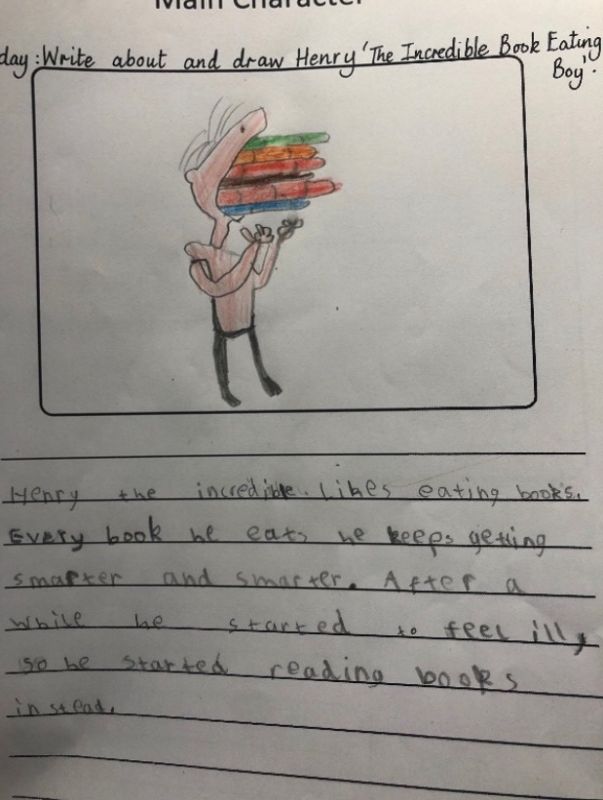 Main Character
day: Write about and draw Henry 'The Incredible Book Eating
Boy'.
Henry the incredible. Likes eating books.
Every book he eats he keeps getting
smarter and smarter. After a
while he started to feel illy
so he started reading books
instead.